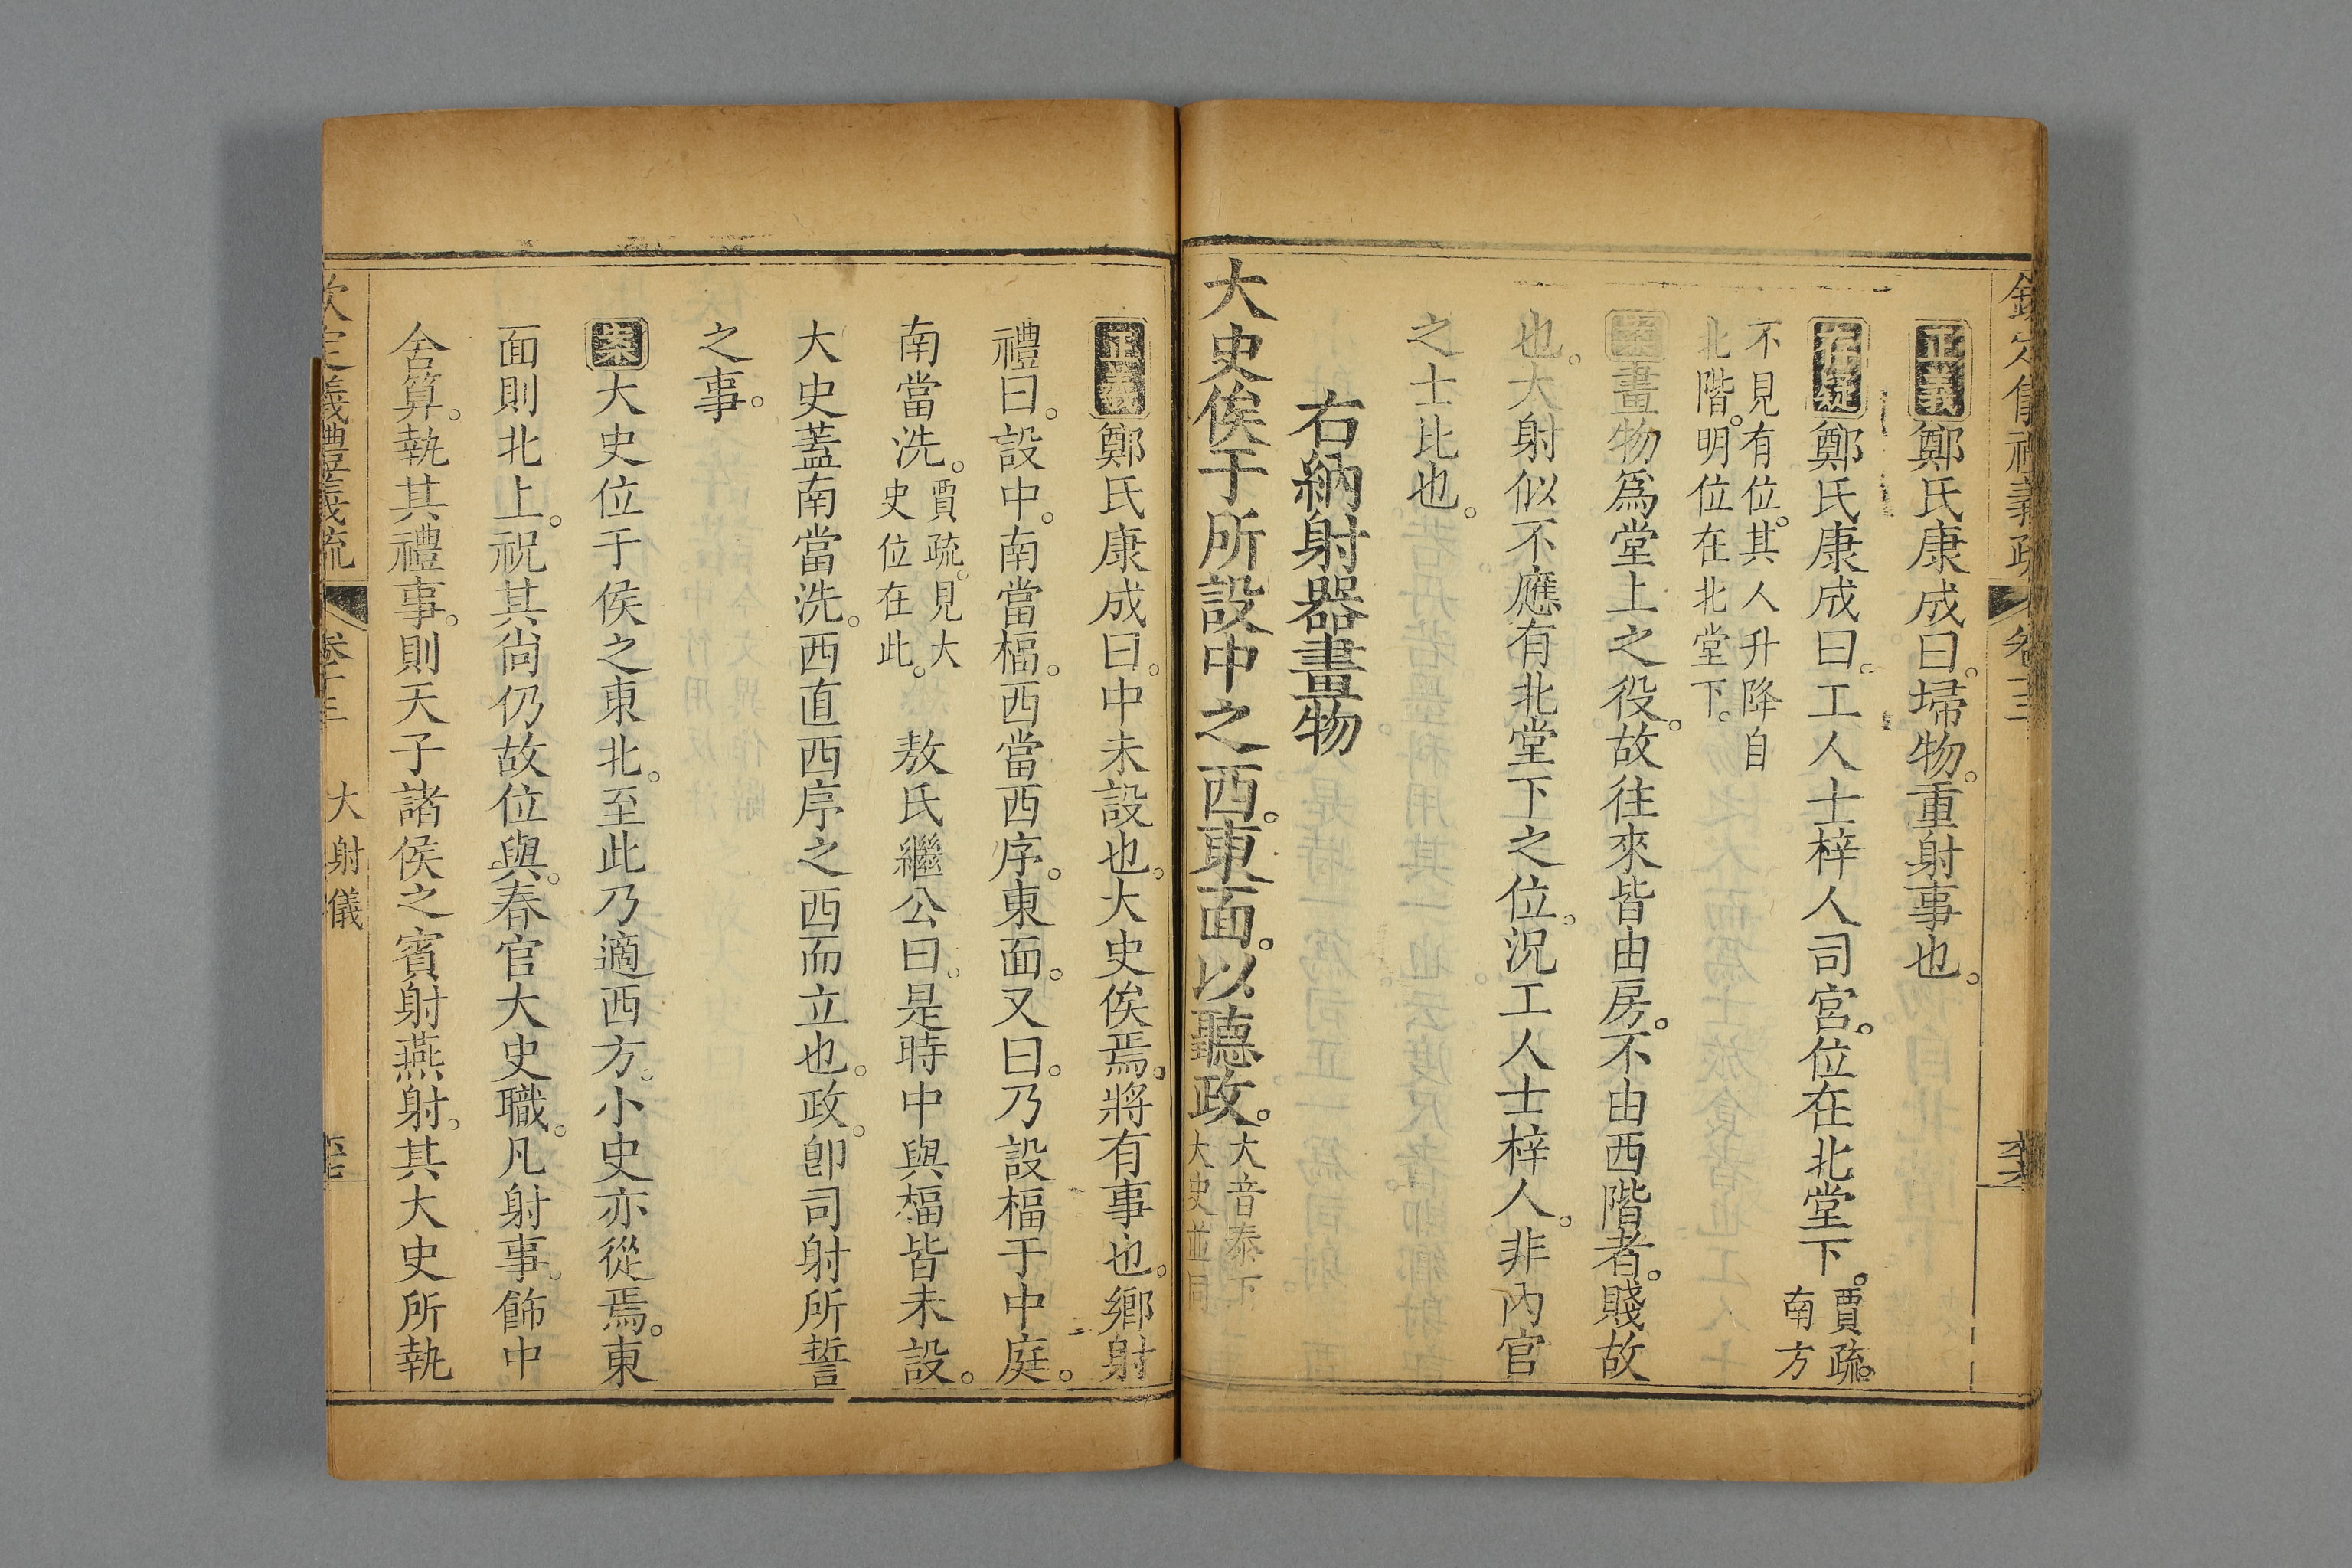 欽定儀禮義疏 卷十三
正義鄭氏康成曰。埽物。重射事也。
存疑鄭氏康成曰。工人士梓人司宮。位在北堂下。賈疏。南方
不見有位。其人升降自北階。明位在北堂下。
案畫物爲堂上之役。故往來皆由房。不由西階者。賤故
也。大射似不應有北堂下之位。況工人士梓人。非內官
之士比也。
右納射器畫物
大史俟于所設中之西。東面。以聽政。大音泰下大史並同
正義鄭氏康成曰。中未設也。大史俟焉。將有事也。鄉射
禮曰。設中。南當楅。西當西序。東面。又曰。乃設楅于中庭。
南當洗。賈疏。見大史位在此。 敖氏繼公曰。是時中與楅皆未設。
大史蓋南當洗。西直西序之西而立也。政。卽司射所誓
之事。
案大史位于侯之東北。至此乃適西方。小史亦從焉。東
面則北上。祝其尙仍故位與。春官大史職。凡射事。飾中
舍算。執其禮事。則天子諸侯之賓射燕射。其大史所執
欽定儀禮義疏 卷十三 大射儀